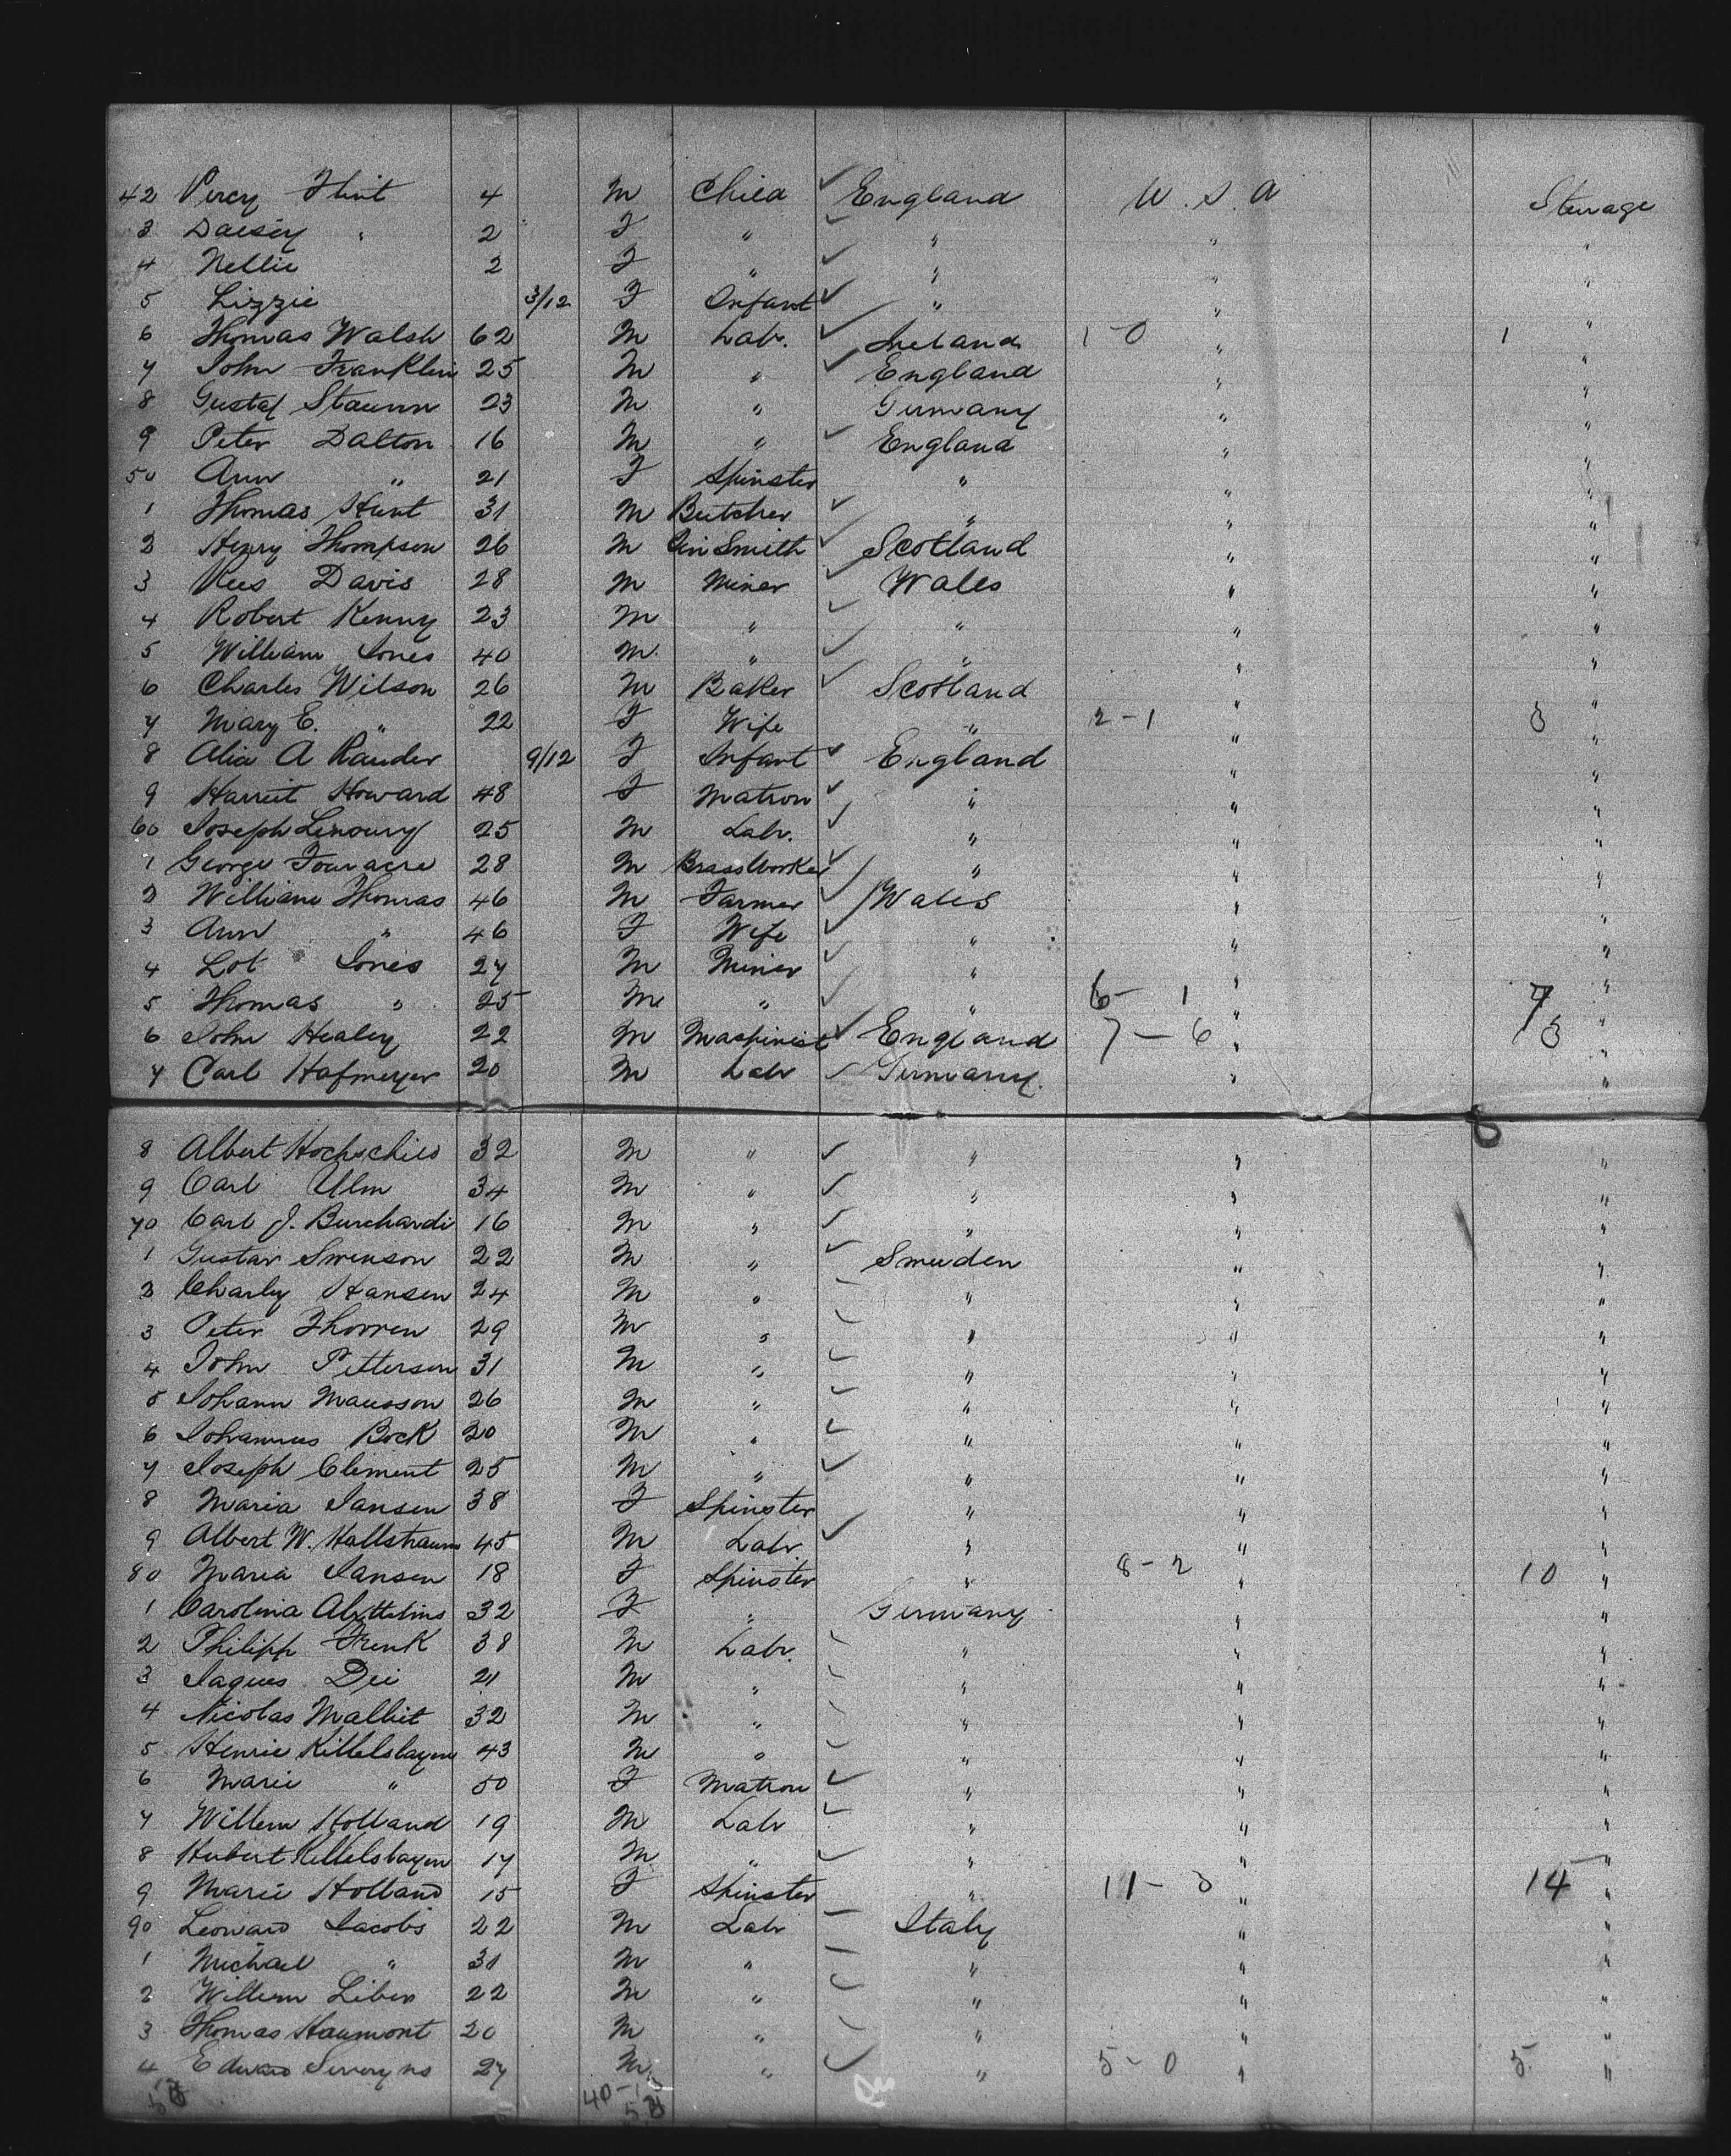 42 Percy Flint 4 M Child ✓ England U.S.A Steerage
3 Daisey " 2 F " ✓ " " "
4 Nellie 2 F " ✓ " " "
5 Lizzie 3/12 F Infant ✓ " " "
6 Thomas Walsh 62 M Labr. ✓ Ireland 1-0 " 1 "
7 John Franklin 25 M " ✓ England " "
8 Gustaf 23 M " Germany " "
9 Peter Dalton 16 M " ✓ England " "
50 Ann " 21 F Spinster " " "
1 Thomas Hunt 31 M Butcher ✓ " " "
2 Henry Thompson 26 M Tin Smith ✓ Scotland " "
3 Rees Davis 28 M Miner ✓ Wales " "
4 Robert Kenny 23 M " ✓ " " "
5 William Jones 40 M. " ✓ " " "
6 Charles Wilson 26 M Baker ✓ Scotland " "
7 Mary E. " 22 F Wife " 2-1 " 3 "
8 A 9/12 F Infant ✓ England " "
9 Harriet Howard 48 F Matron ✓ " " "
60 Joseph 25 M Labr. ✓ " " "
1 George Fouracre 28 M Brass Worker ✓ " " "
2 William Thomas 46 M Farmer ✓ Wales " "
3 Ann " 46 F Wife ✓ " " "
4 Lot Jones 27 M Miner ✓ " " "
5 Thomas " 25 M " ✓ " 6-1 " 7 "
6 John Healey 22 M ✓ England 7-6 " "
7 Carl Hofmeyer 20 M Labr ✓ Germany. " "
8 Albert Hochschild 32 M " ✓ " " "
9 Carl Ulm 34 M " ✓ " " "
70 Carl J. Burchardi 16 M " ✓ " " "
1 Gustav Swenson 22 M " ✓ Sweeden " "
2 Charley Hansen 24 M " " " "
3 Peter Thorren 29 M " " " "
4 John Petterson 31 M " ✓ " " "
5 Johann Mausson 26 M " ✓ " " "
6 Johannes Bock 20 M " ✓ " " "
7 Joseph Clement 25 M " ✓ " " "
8 Maria Jansen 38 F Spinster " " "
9 Albert W. 45 M Labr ✓ " " "
80 Maria Jansen 18 F Spinster " 8-2 " 10 "
1 Carolina 32 F " Germany " "
2 Philipp Frenk 38 M Labr. " " "
3 Jaques Dei 21 M " " " "
4 Nicolas Malliet 32 M " " " "
5 Henrie Kittelslayen 43 M " " " "
6 Marie " 50 F Matron ✓ " " "
7 Willem Holland 19 M Labr ✓ " " "
8 Hubert Kittelslayen 17 M " ✓ " " "
9 Marie Holland 15 F Spinster " 11-3 " 14 "
90 Leonard Jacobs 22 M Labr Italy " "
1 Michael " 31 M " " " "
2 Willem Liben 22 M " ✓ " " "
3 Thomas Haumont 20 M " " " "
4 Edward 27 M " ✓ " 5-0 " 5 "